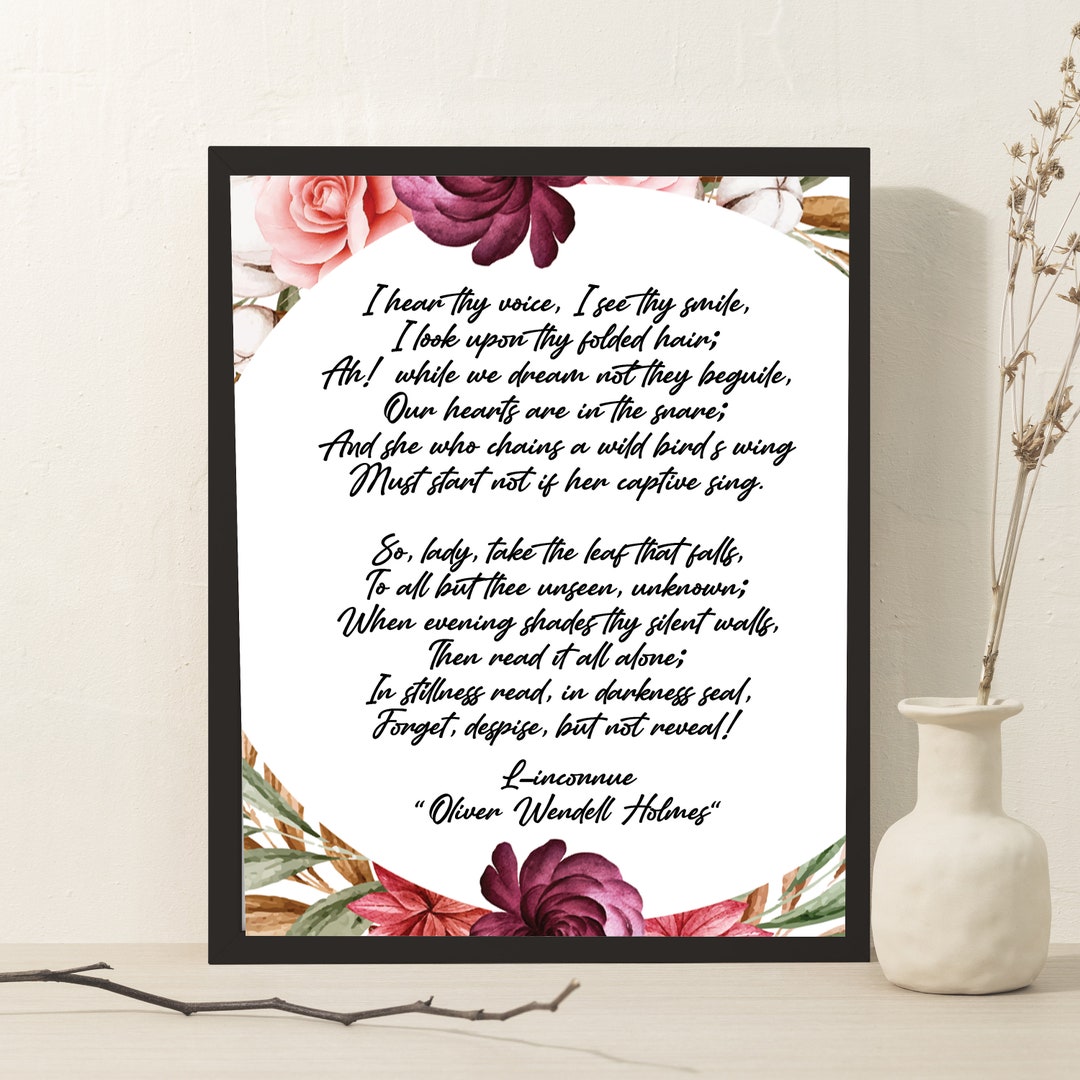 I hear thy voice, I see thy smile,
I look upon thy folded hair;
Ah! while we dream not they beguile,
Our hearts are in the snare;
And she who chains a wild bird's wing
Must start not if her captive sing.
So, lady, take the leaf that falls,
To all but thee unseen, unknown;
When evening shades thy silent walls,
Then read it all alone;
In stillness read, in darkness seal,
Forget, despise, but not reveal!
L-inconnue
“Oliver Wendell Holmes“